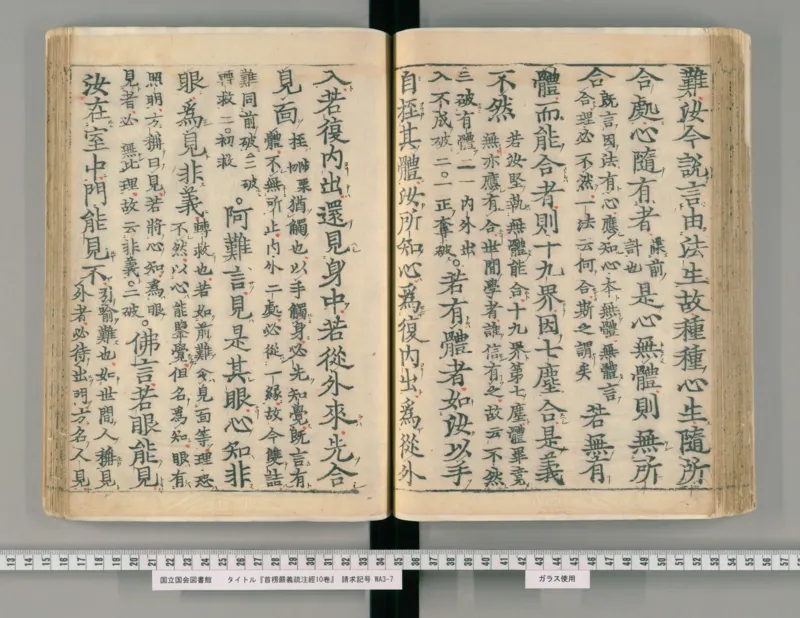 難汝今說言由法生故種種心生隨所
合處心隨有者 牒前計也 是心無體則無所
合 既言因法有心應知心本無體無體言合合理必不然一法云何合斯之謂矣 若無有
體而能合者則十九界因七塵合是義
不然 若汝堅執無體能合十九界第七塵體畢竟無亦應有合世間學者誰信有之故云不然
三破有體二一內外出入不成破二一正奪破。若有體者如汝以手
自挃其體汝所知心為復內出為從外
入若復內出還見身中若從外來先合
見面 挃觸也以手觸身必先知覺既言有體不無所止內外二處必從一緣故今雙詰
難同前破二破轉救二初救。阿難言見是其眼心知非
眼為見非義 轉救也若如前難令見面等理恐不然以心能鑒覺但名為知眼有
照明方稱曰見若將心知為眼見者必無此理故云非義二破。佛言若眼能見
汝在室中門能見不 引喻難也如世間人稱見外者必待出明方名人見
国立国会図書館 タイトル『首楞嚴義疏注經10巻』 請求記号 WA3-7
ガラス使用
13 14 15 16 17 18 19 20 21 22 23 24 25 26 27 28 29 30 31 32 33 34 35 36 37 38 39 40 41 42 43 44 45 46 47 48 49 50 51 52 53 54 55 56 57 58